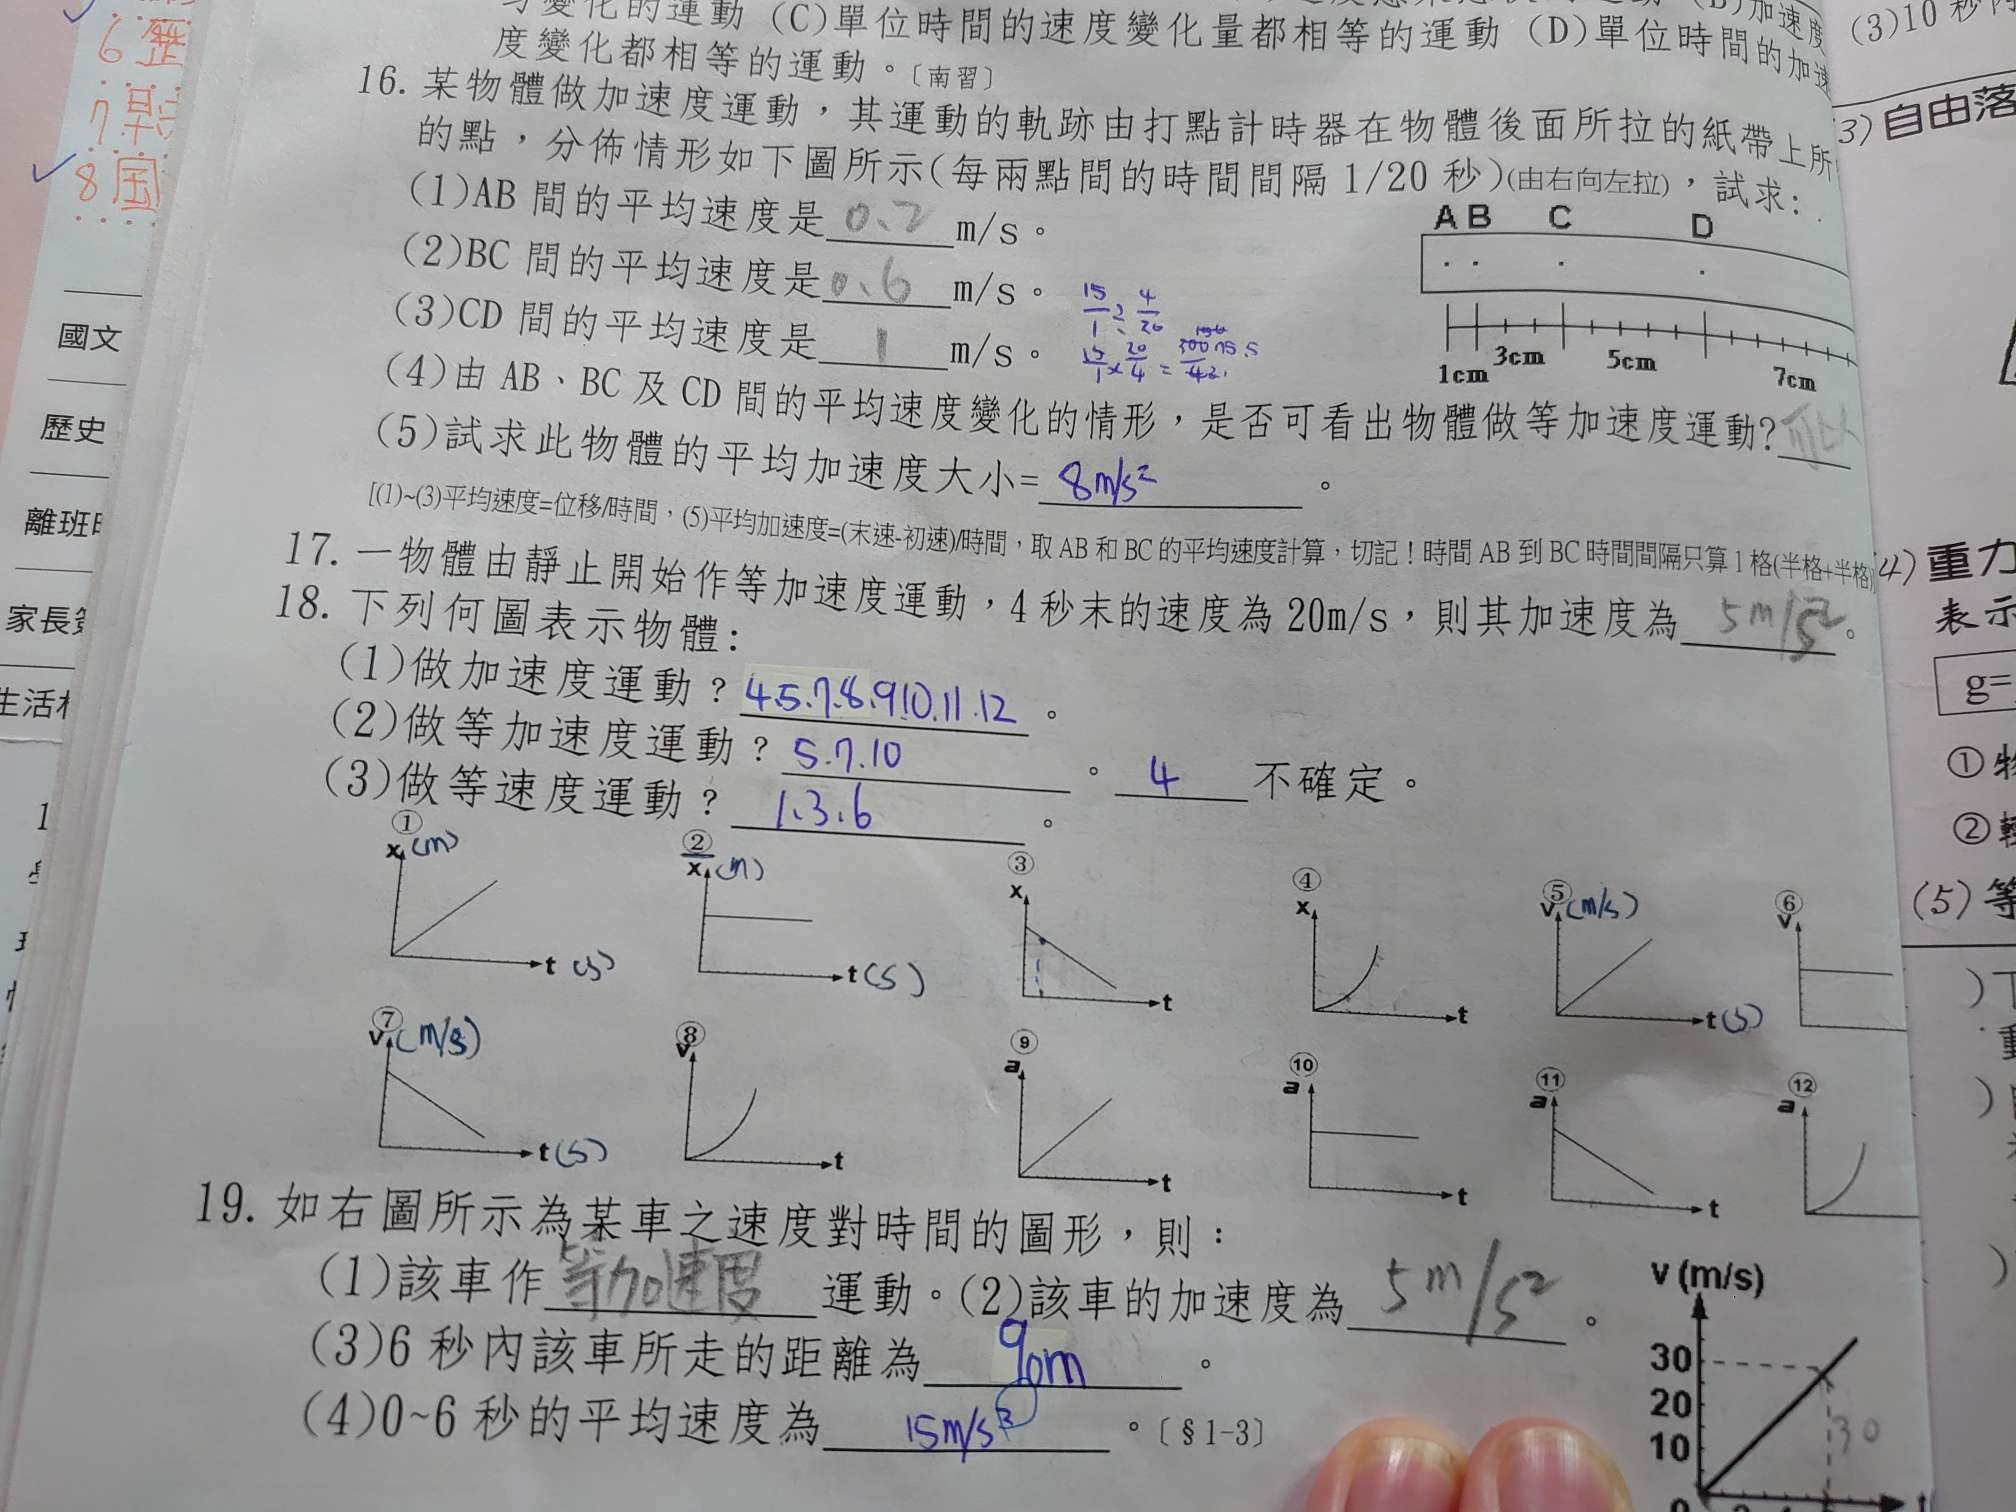 6 歷
7
8 國
國文
歷史
離班
勻變化的運動 (C)單位時間的速度變化量都相等的運動 (D)單位時間的加速
度變化都相等的運動。〔南習〕
16. 某物體做加速度運動，其運動的軌跡由打點計時器在物體後面所拉的紙帶上所
的點，分佈情形如下圖所示(每兩點間的時間間隔 1/20 秒)(由右向左拉)，試求：
(1)AB 間的平均速度是 0.2 m/s。
(2)BC 間的平均速度是 0.6 m/s。
(3)CD 間的平均速度是 1 m/s。
A B C D
1cm 3cm 5cm 7cm
(4)由 AB、BC 及 CD 間的平均速度變化的情形，是否可看出物體做等加速度運動? 可以
(5)試求此物體的平均加速度大小= 8m/s² 。
[(1)~(3)平均速度=位移/時間，(5)平均加速度=(末速-初速)/時間，取 AB 和 BC 的平均速度計算，切記！時間 AB 到 BC 時間間隔只算 1 格(半格+半格)
17. 一物體由靜止開始作等加速度運動，4 秒末的速度為 20m/s，則其加速度為 5m/s² 。
18. 下列何圖表示物體：
(1)做加速度運動？ 4.5.7.8.9.10.11.12 。
(2)做等加速度運動？ 5.7.10 。 4 不確定。
(3)做等速度運動？ 1.3.6 。
① ② ③ ④ ⑤ ⑥
x (m) x (m) x x v (m/s) v
t (s) t (s) t t t (s)
⑦ ⑧ ⑨ ⑩ ⑪ ⑫
v (m/s) v a a a a
t (s) t t t t
19. 如右圖所示為某車之速度對時間的圖形，則：
(1)該車作 等加速度 運動。(2)該車的加速度為 5m/s² 。
(3)6 秒內該車所走的距離為 90m 。
(4)0~6 秒的平均速度為 15m/s 。〔§1-3〕
v (m/s)
30
20
10
0
t
30
(3)10 秒
3) 自由落
(4) 重力
表示
g=
①
②
(5) 等